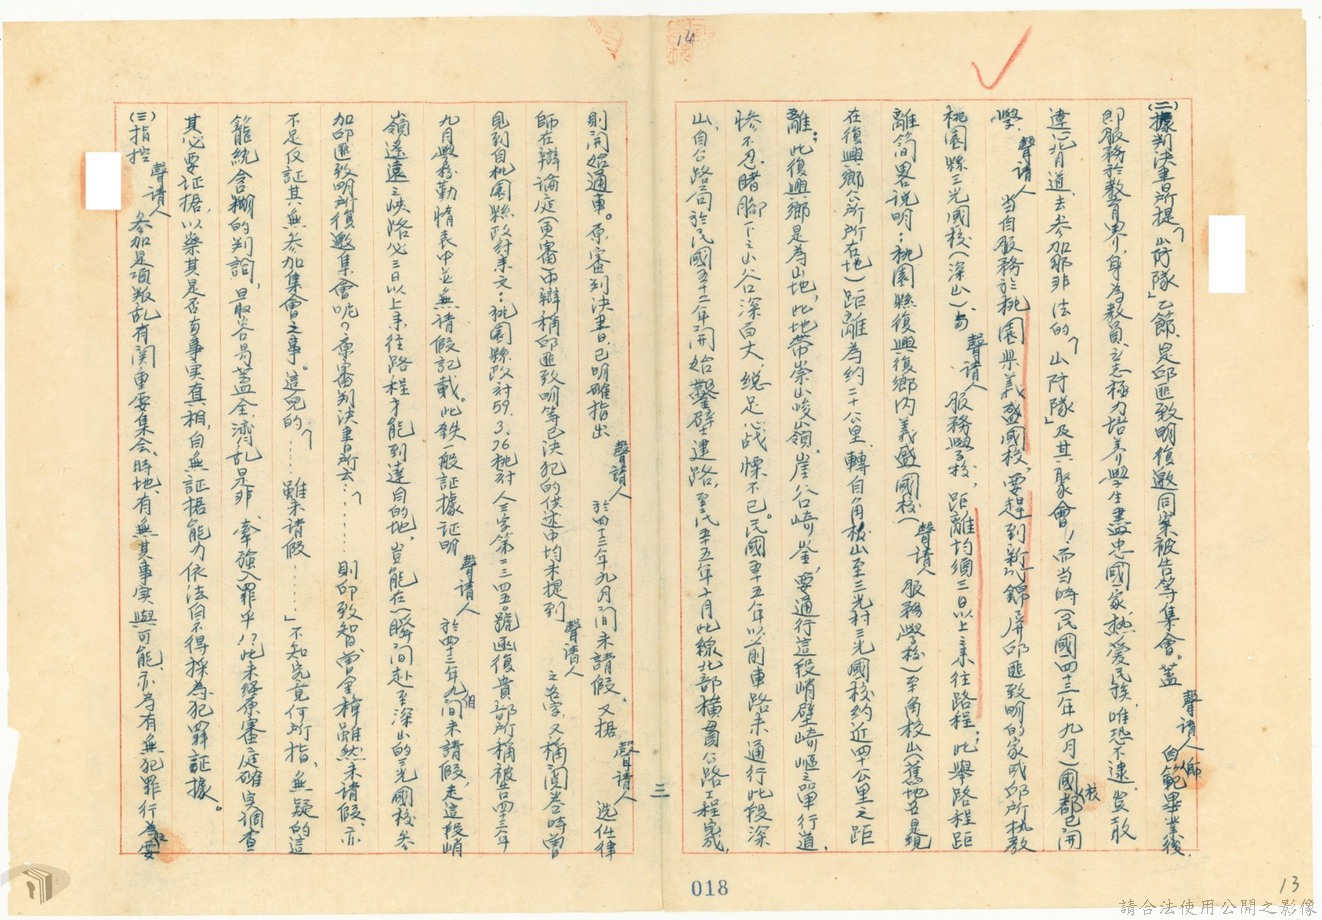 14
(二)據判決書所提「山防隊」乙節,是邱匪致明復邀同案被告等集會。蓋聲請人自師範畢業後,
即服務於教育界,身為教員,立志極力培養學生盡忠國家,熱愛民族,唯恐不逮,豈敢
違心背道,去參加那非法的「山防隊」及其聚會!而當時(民國四十三年九月)國校都已開
學,聲請人當自服務於桃園縣義盛國校,要趕到新竹錦屏邱匪致明的家或邱所執教
桃園縣三光國校(深山),與聲請人服務學校,距離均須三日以上來往路程。此舉路程距
離簡畧說明:桃園縣復興鄉內義盛國校(聲請人服務學校)至角板山(舊地名是現
在復興鄉公所所在地)距離為約二十公里,轉自角板山至三光村三光國校約近四十公里之距
離;此復興鄉是為山地,此地帶崇山峻嶺,崖谷崎崟,要通行這段峭壁崎嶇之單行道,
慘不忍睹腳下之山谷深百丈,總是心戰慄不已。民國五十五年以前車路未通行此段深
山,自公路局於民國五十二年開始鑿壁建路,至民五十五年十月此線北部橫貫公路工程完竣,
則開始通車。原審判決書已明確指出聲請人於四十三年九月間未請假,又据聲請人選任律
師在辯論庭(更審而辯稱邱匪致明等已決犯的供述中均未提到聲請人之名字,又稱閱卷時曾
見到自桃園縣政府來文:桃園縣政府59.3.26桃府人三字第二三四五0號函復貴部所稱被告四十三年
九月學校勤惰表中並無請假記載。此鉄一般証據証明聲請人於四十三年九月間未請假,走這段峭
嶺遙遠之峽路必三日以上來往路程才能到達目的地,豈能在(瞬間赴至深山的三光國校參
加邱匪致明所復邀集會呢?原審判決書所云:「……則邱致智曾金樟雖然未請假,亦
不足反証其無參加集會之事。這兒的「……雖未請假……」不知究竟何所指,無疑的這
籠統含糊的判詞,最容易蓋全,淆乱是非,牽強入罪乎!?此未經原審庭確實調查
其必要証据,以察其是否有事实真相,自無証据能力依法自不得採為犯罪証據。
(三)指控聲請人參加是項叛乱有関重要集会,時地、有無其事实與可能,亦為有無犯罪行為重要
三
018
13
請合法使用公開之影像